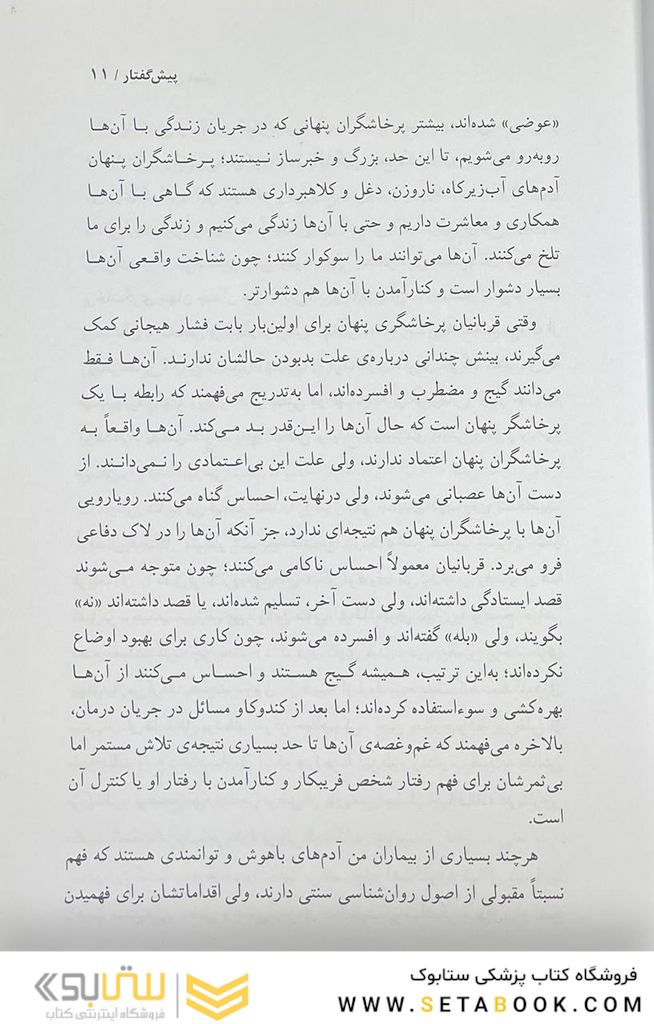 پیش‌گفتار / ۱۱
«عوضی» شده‌اند، بیشتر پرخاشگران پنهانی که در جریان زندگی با آن‌ها
روبه‌رو می‌شویم، تا این حد، بزرگ و خبرساز نیستند؛ پرخاشگران پنهان
آدم‌های آب‌زیرکاه، ناروزن، دغل و کلاهبرداری هستند که گاهی با آن‌ها
همکاری و معاشرت داریم و حتی با آن‌ها زندگی می‌کنیم و زندگی را برای ما
تلخ می‌کنند. آن‌ها می‌توانند ما را سوکوار کنند؛ چون شناخت واقعی آن‌ها
بسیار دشوار است و کنارآمدن با آن‌ها هم دشوارتر.
وقتی قربانیان پرخاشگری پنهان برای اولین‌بار بابت فشار هیجانی کمک
می‌گیرند، بینش چندانی درباره‌ی علت بدبودن حالشان ندارند. آن‌ها فقط
می‌دانند گیج و مضطرب و افسرده‌اند، اما به‌تدریج می‌فهمند که رابطه با یک
پرخاشگر پنهان است که حال آن‌ها را این‌قدر بد می‌کند. آن‌ها واقعاً به
پرخاشگران پنهان اعتماد ندارند، ولی علت این بی‌اعتمادی را نمی‌دانند. از
دست آن‌ها عصبانی می‌شوند، ولی درنهایت، احساس گناه می‌کنند. رویارویی
آن‌ها با پرخاشگران پنهان هم نتیجه‌ای ندارد، جز آنکه آن‌ها را در لاک دفاعی
فرو می‌برد. قربانیان معمولاً احساس ناکامی می‌کنند؛ چون متوجه می‌شوند
قصد ایستادگی داشته‌اند، ولی دست آخر، تسلیم شده‌اند، یا قصد داشته‌اند «نه»
بگویند، ولی «بله» گفته‌اند و افسرده می‌شوند، چون کاری برای بهبود اوضاع
نکرده‌اند؛ به‌این ترتیب، همیشه گیج هستند و احساس می‌کنند از آن‌ها
بهره‌کشی و سوءاستفاده کرده‌اند؛ اما بعد از کندوکاو مسائل در جریان درمان،
بالاخره می‌فهمند که غم‌وغصه‌ی آن‌ها تا حد بسیاری نتیجه‌ی تلاش مستمر اما
بی‌ثمرشان برای فهم رفتار شخص فریبکار و کنارآمدن با رفتار او یا کنترل آن
است.
هرچند بسیاری از بیماران من آدم‌های باهوش و توانمندی هستند که فهم
نسبتاً مقبولی از اصول روان‌شناسی سنتی دارند، ولی اقداماتشان برای فهمیدن
فروشگاه کتاب پزشکی ستابوک
WWW.SETABOOK.COM
ستابوک
فروشگاه اینترنتی کتاب